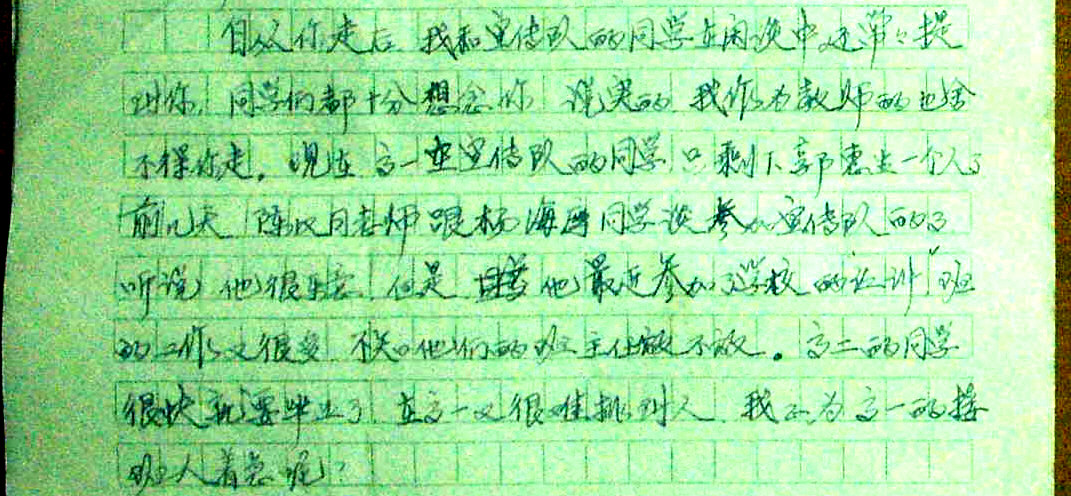 自从你走后 我和宣传队的同学在闲谈中还常々提
到你 同学们都十分想念你 说实的 我作为教师的也舍
不得你走。现在 高一在宣传队的同学 只剩下郭惠生一个人了
前几天 陈汉月老师跟杨海 同学谈参加宣传队的了
听说 他很乐意 但是 他最近参加了学校的 训"班
的工作々又很多 不知他们的班主任放不放。高二的同学
很快就要毕业了 在高一又很难挑到人 我正为高一的接
班人着急呢！